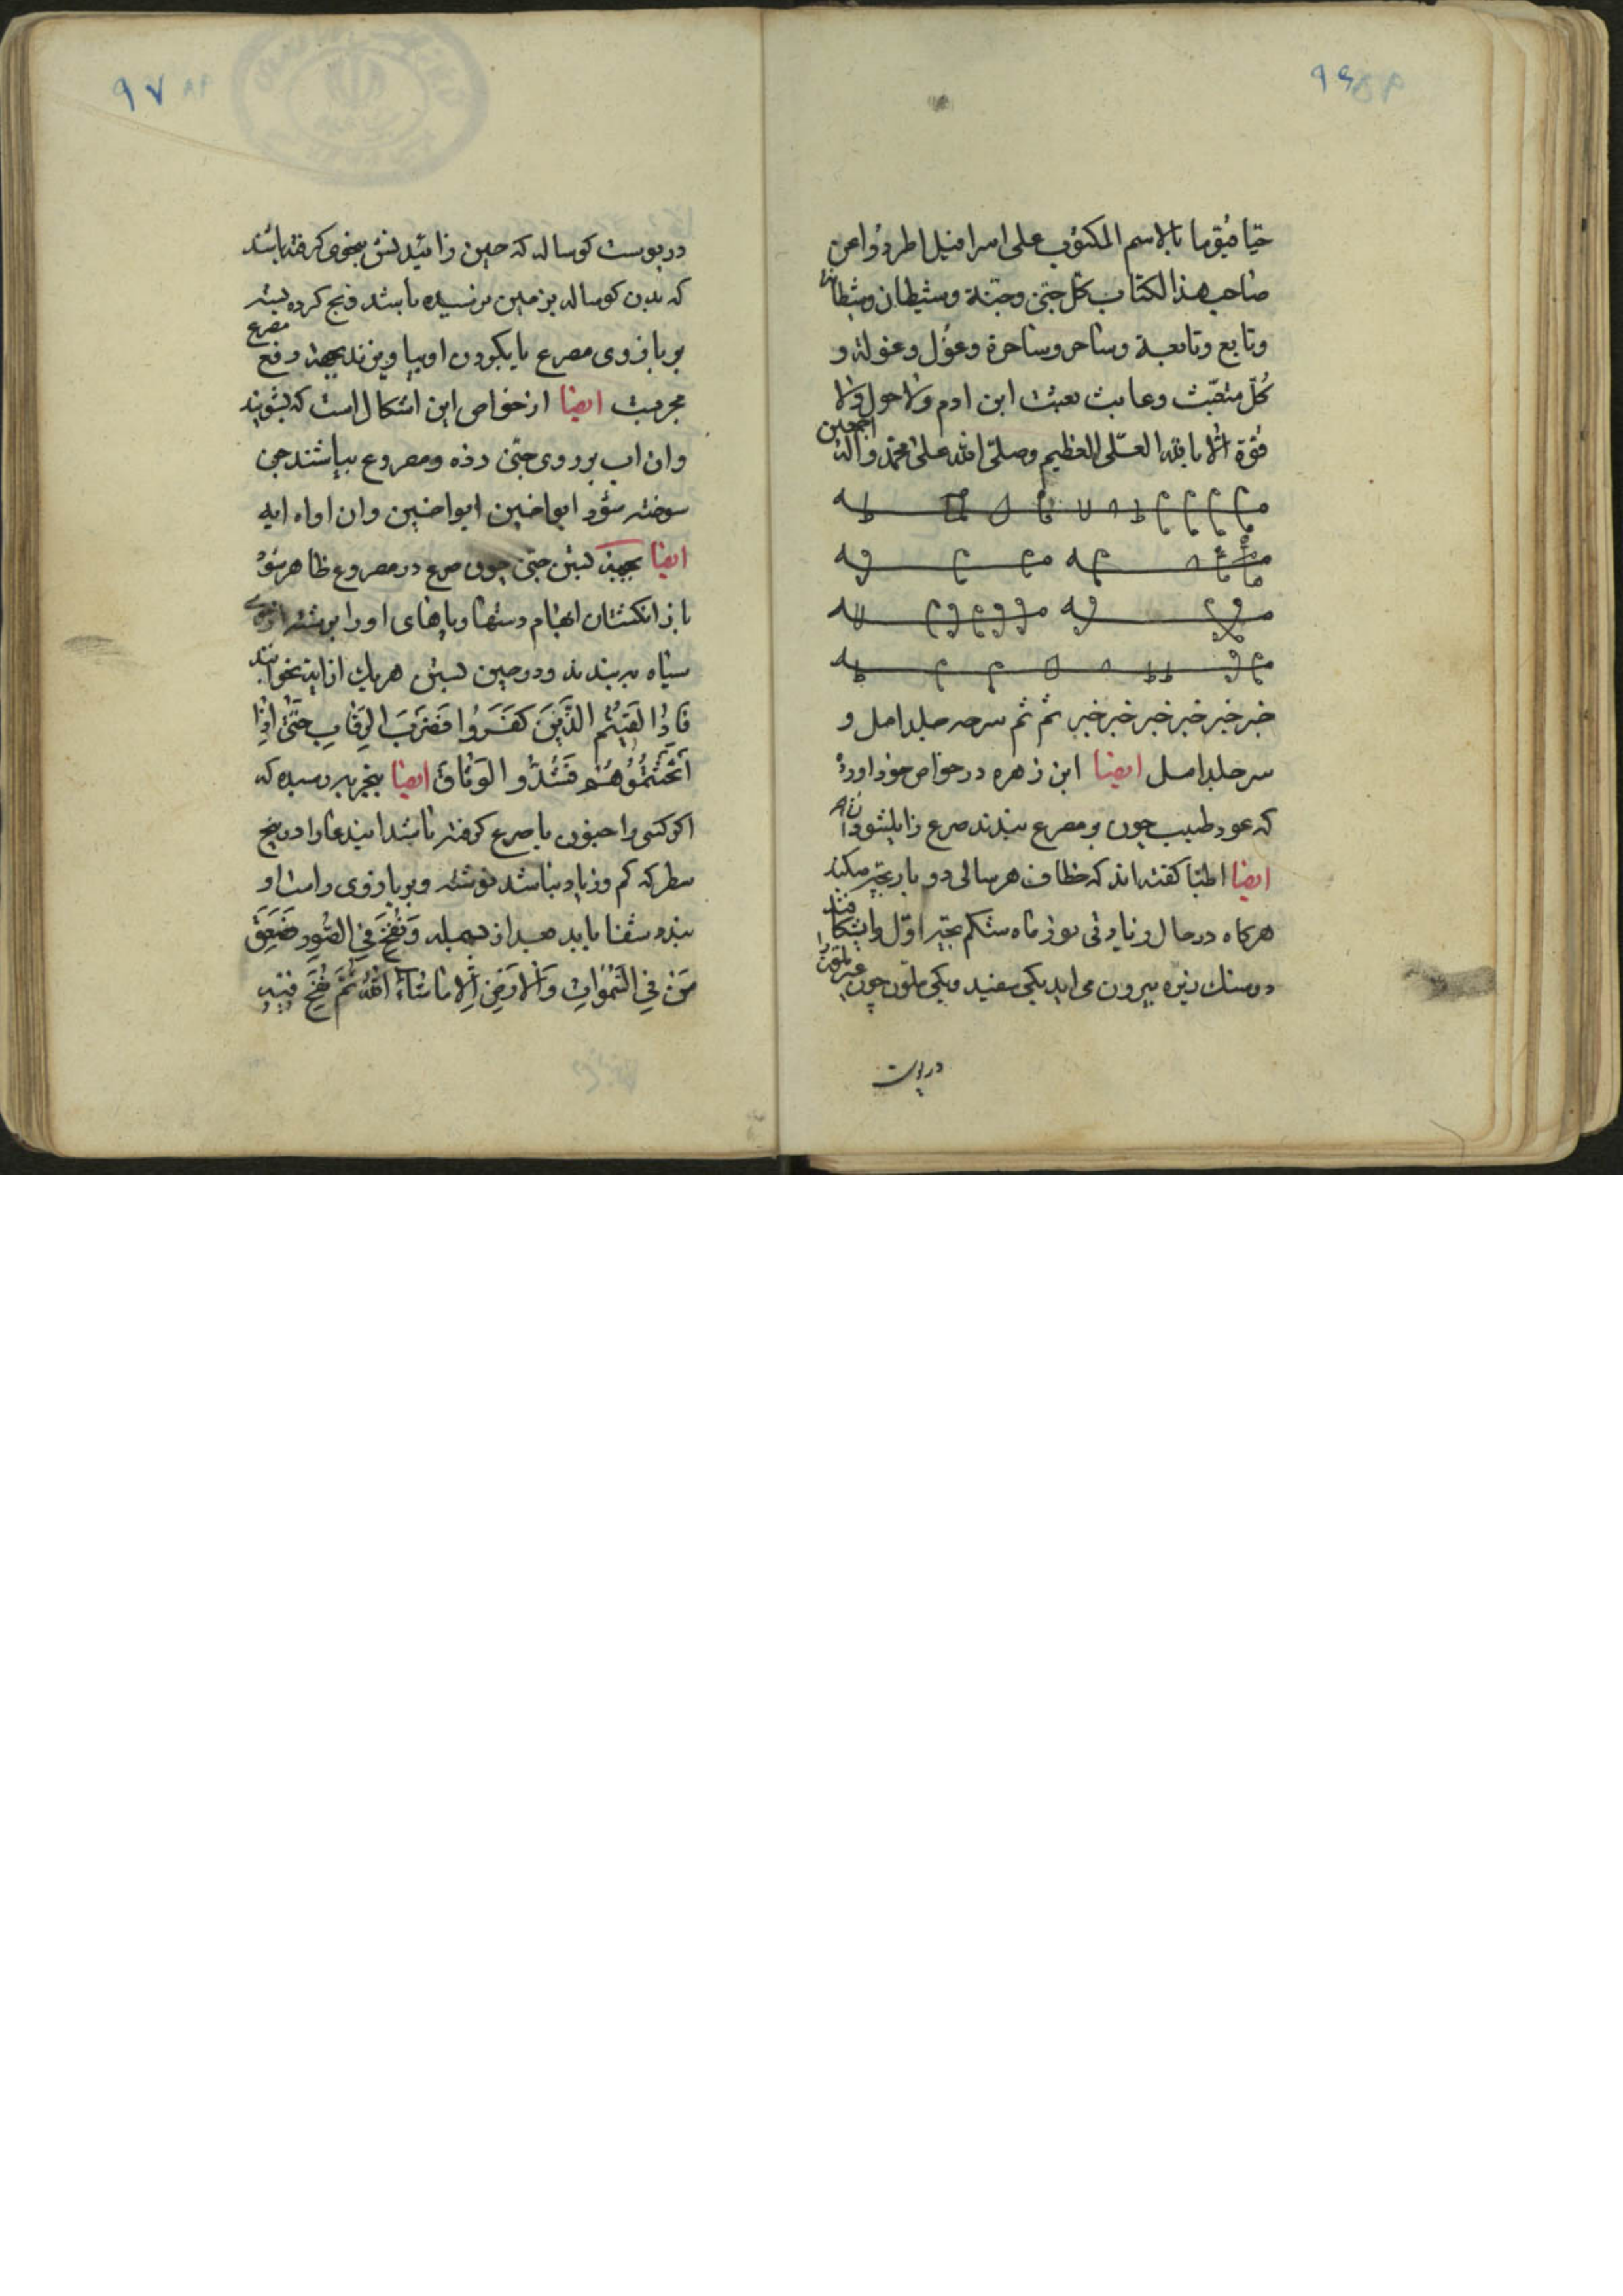 ۹۶
حیا قیوما بالاسم المکتوب علی اسرافیل اطردوا عن
صاحب هذا الکتاب کل جنی وجنیة وشیطان وشیطانة
وتابع وتابعة وساحر وساحرة وغول وغولة و
کل متعبث وعابث یعبث ابن ادم ولا حول ولا
قوة الا بالله العلی العظیم وصلی الله علی محمد واله اجمعین
خبر خبر خبر خبر خبر خبر ثم ثم سرحه حلدامل و
سرحلدامل ایضا ابن زهره در خواص خود اورده
که عود طیب چون بر مصرع بندند صرع زایل شود
ایضا اطبا کفته اند که خطاف هر سالی دو بار بچه میکند
هرکاه در حال زیادتی نور ماه شکم بچه اول را بشکافند
دو سنك ریزه بیرون می اید یکی سفید ویکی ملون چون غیر ملون
در پوست
۹۷
در پوست کوساله که حین زائیدنش بنحوی کرفته باشند
که بدن کوساله بزمین نرسیده باشد ذبح کرده بسته
بر بازوی مصرع یا بکردن او بیاویزند بجهة دفع مصرع
مجربست ایضا از خواص این اشکال است که بشویند
وان اب بر روی جنی زده ومصروع بپاشند جن
سوخته شود ایواخنین ایواخنین وان اواه ایه
ایضا بجهة بستن جنی چون صرع در مصروع ظاهر شود
باید انکشتان ابهام دستها وپاهای او را بریشته
سیاه ببندند ودر حین بستن هریك از ایه بخوانند
فَاِذا لَقیتُمُ الَّذینَ کَفَرُوا فَضَربَ الرِّقابِ حَتّی اِذا
اَثخَنتُمُوهُم فَشُدُّوا الوَثاقَ ایضا بتجربه رسیده که
اکر کسی را جنون یا صرع کرفته باشد ایندعا را در پنج
سطر که کم وزیاد نباشد نوشته وبر بازوی راست او
بندد شفا یابد بعد از بسمله وَنُفِخَ فِی الصُّورِ فَصَعِقَ
مَن فِی السَّمواتِ وَالاَرضِ اِلّا ماشاءَ اللهُ ثُمَّ نُفِخَ فیهِ